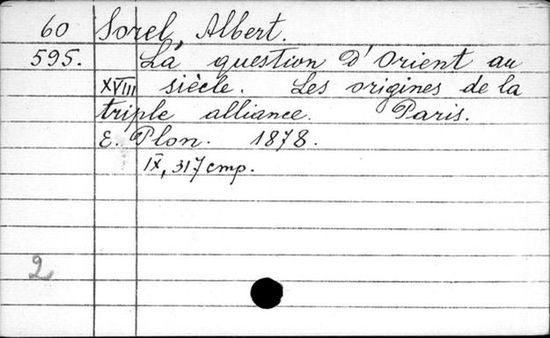 60 Sorel, Albert.
595. La question d'Orient au
XVIII siècle. Les origines de la
triple alliance. Paris.
E. Plon. 1878.
IX, 317 стр.
2